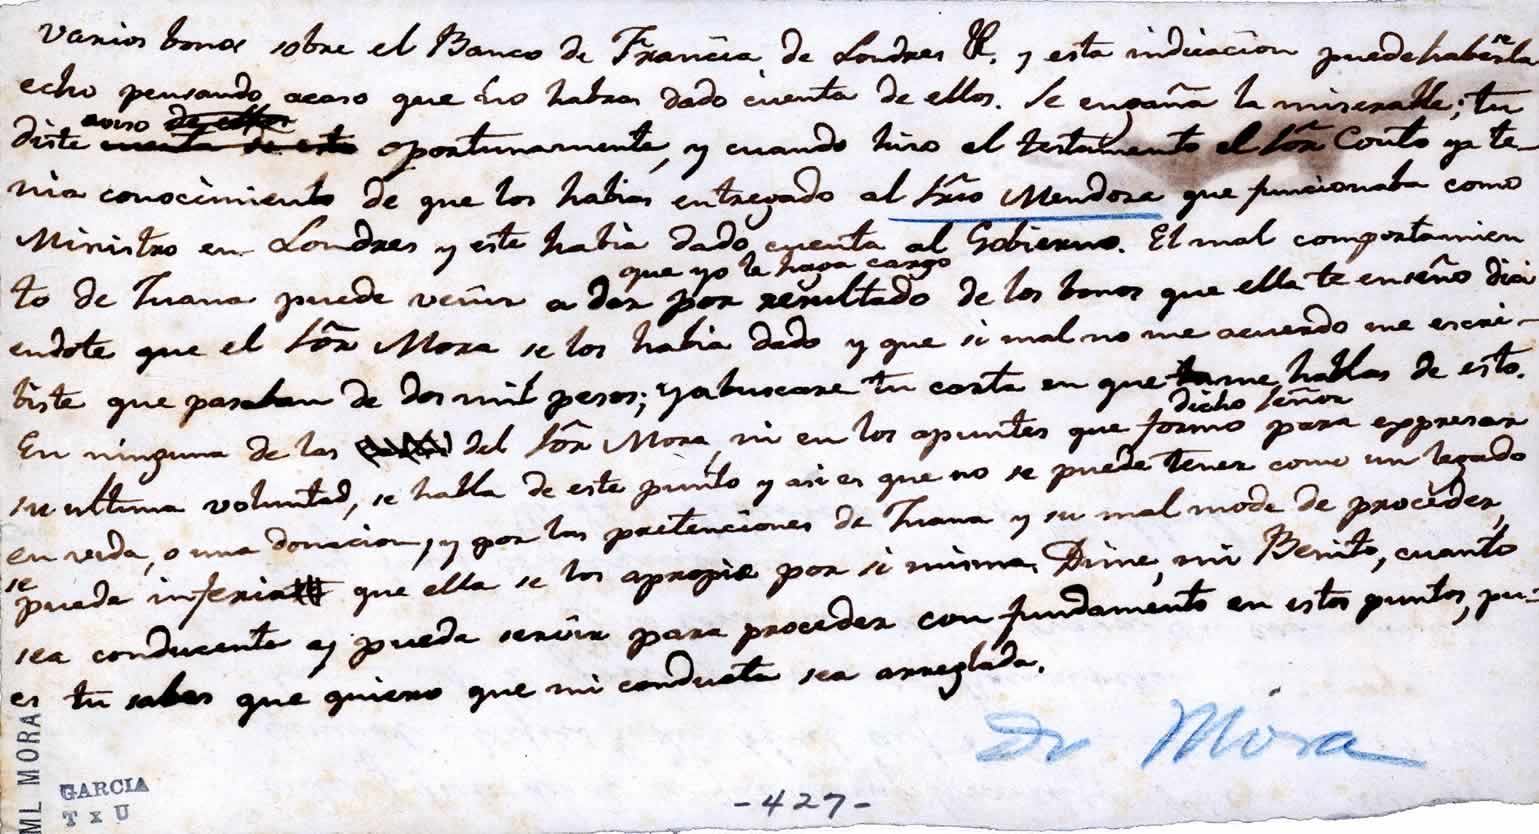 varios bonos sobre el Banco de Francia de Londres &. y esta indicacion puede habersela
echo pensando acaso que no habras dado cuenta de ellos. Se engaña la miserable; tu
diste aviso oportunamente, y cuando hizo el testamento el Sõr Couto ya te-
nia conocimiento de que los habias entregado al Sõr Mendoza que funcionaba como
Ministro en Londres y este habia dado cuenta al Gobierno. El mal comportamien
que yo le haga cargo
to de Juana puede venir a dar por resultado de los bonos que ella te enseño dici
endote que el Sõr Mora se los habia dado y que si mal no me acuerdo me escri-
biste que pasaban de dos mil pesos; ya buscare tu carta en que me hablas de esto.
dicho Señor
En ninguna de las del Sõr Mora, ni en los apuntes que formo para expresar
su ultima voluntad, se habla de este punto y asi es que no se puede tener como un legado
en vida, o una donacion, y por las pretenciones de Juana y su mal modo de proceder,
se
pueda inferir que ella se los apropie por si misma. Dime, mi Benito, cuanto
sea conducente y pueda servir para proceder con fundamento en estos puntos, pu-
es tu sabes que quiero que mi conducta sea arreglada.
Dr Mora
ML MORA
GARCIA
T x U
-427-